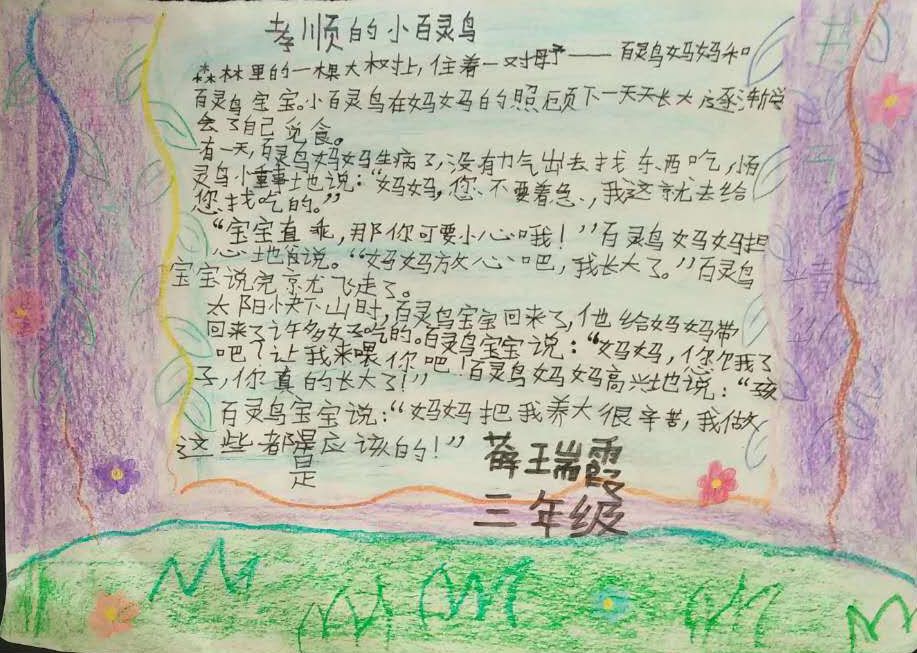 孝顺的小百灵鸟
森林里的一棵大树上，住着一对母子——百灵鸟妈妈和
百灵鸟宝宝。小百灵鸟在妈妈的照顾下一天天长大，逐渐学
会了自己觅食。
有一天，百灵鸟妈妈生病了，没有力气出去找东西吃，百
灵鸟小懂事地说：“妈妈，您不要着急，我这就去给
您找吃的。”
“宝宝真乖，那你可要小心哦！”百灵鸟妈妈担
心地说。“妈妈放心吧，我长大了。”百灵鸟
宝宝说完就飞走了。
太阳快下山时，百灵鸟宝宝回来了，他给妈妈带
回来了许多好吃的。百灵鸟宝宝说：“妈妈，您饿了
吧？让我来喂你吧！百灵鸟妈妈高兴地说：“孩
子，你真的长大了！”
百灵鸟宝宝说：“妈妈把我养大很辛苦，我做
这些都是应该的！”
是
薛瑞霞
三年级